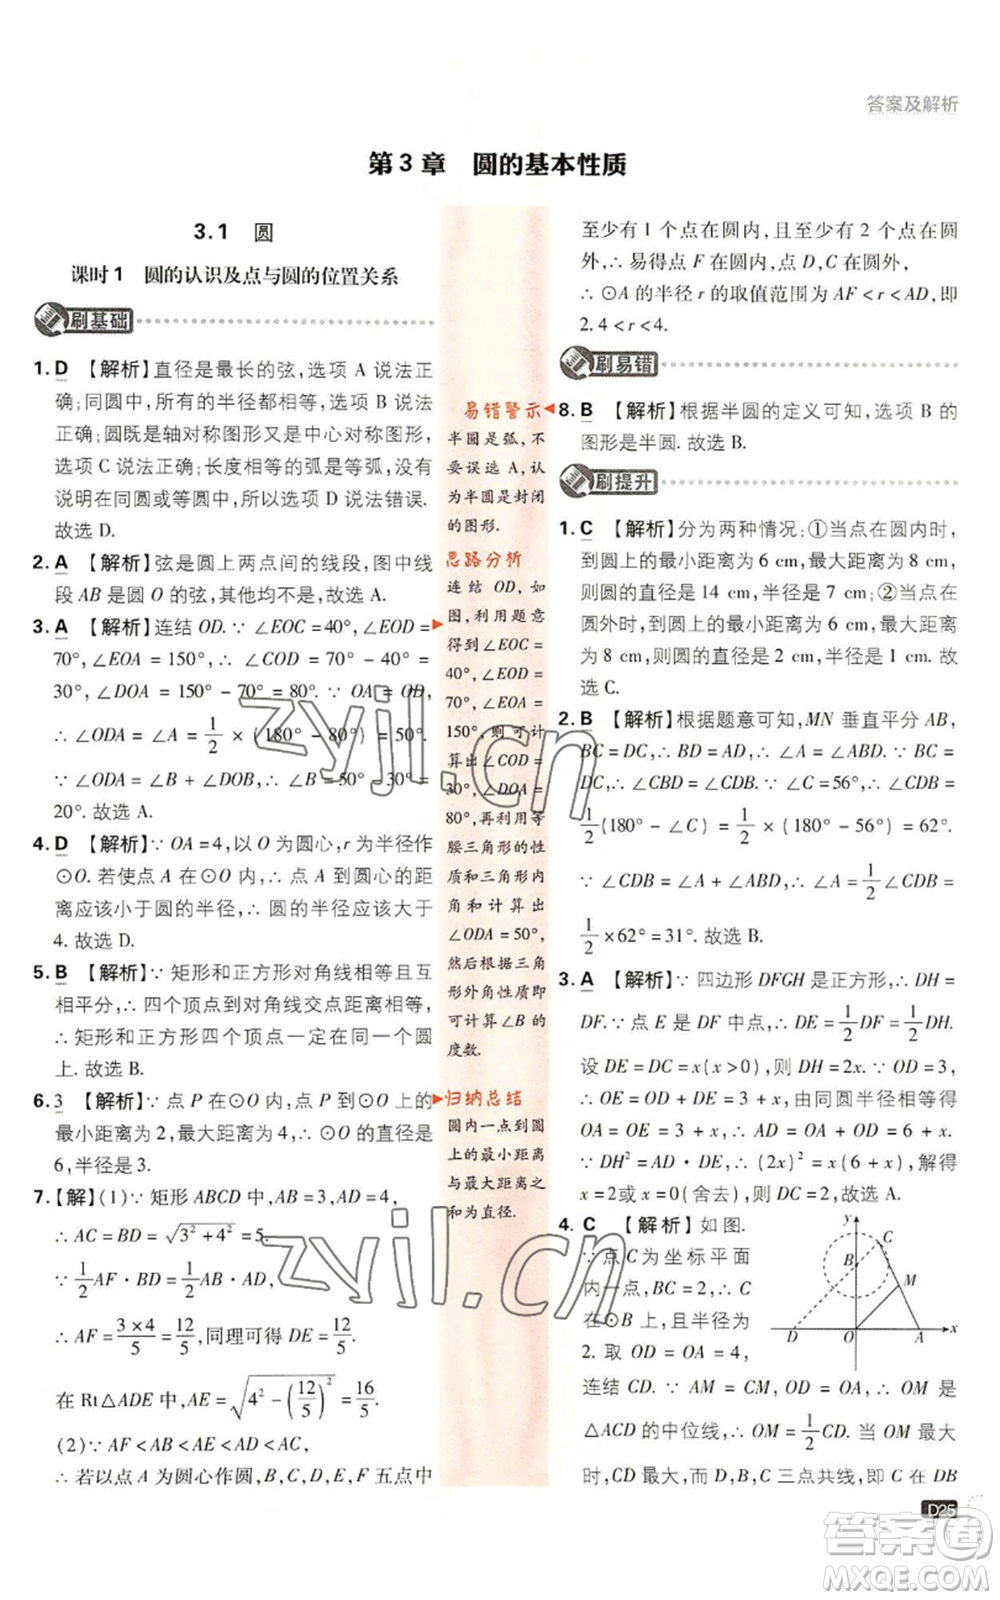 答案及解析
第 3 章　圆的基本性质
3.1　圆
课时 1　圆的认识及点与圆的位置关系
刷基础
1. D　【解析】直径是最长的弦,选项 A 说法正
确;同圆中,所有的半径都相等,选项 B 说法
正确;圆既是轴对称图形又是中心对称图形,
选项 C 说法正确;长度相等的弧是等弧,没有
说明在同圆或等圆中,所以选项 D 说法错误.
故选 D.
2. A　【解析】弦是圆上两点间的线段,图中线
段 AB 是圆 O 的弦,其他均不是,故选 A.
3. A　【解析】连结 OD. ∵ ∠EOC = 40°, ∠EOD =
70°, ∠EOA = 150°, ∴ ∠COD = 70° - 40° =
30°, ∠DOA = 150° - 70° = 80°. ∵ OA = OD,
∴ ∠ODA = ∠A = 1/2 × (180° - 80°) = 50°.
∵ ∠ODA = ∠B + ∠DOB, ∴ ∠B = 50° - 30° =
20°. 故选 A.
4. D　【解析】∵ OA = 4, 以 O 为圆心, r 为半径作
⊙O. 若使点 A 在⊙O 内, ∴ 点 A 到圆心的距
离应该小于圆的半径, ∴ 圆的半径应该大于
4. 故选 D.
5. B　【解析】∵ 矩形和正方形对角线相等且互
相平分, ∴ 四个顶点到对角线交点距离相等,
∴ 矩形和正方形四个顶点一定在同一个圆
上. 故选 B.
6. 3　【解析】∵ 点 P 在⊙O 内, 点 P 到⊙O 上的
最小距离为 2, 最大距离为 4, ∴ ⊙O 的直径是
6, 半径是 3.
7. 【解】(1) ∵ 矩形 ABCD 中, AB = 3, AD = 4,
∴ AC = BD = √(3² + 4²) = 5.
∵ 1/2 AF · BD = 1/2 AB · AD,
∴ AF = (3 × 4)/5 = 12/5, 同理可得 DE = 12/5.
在 Rt△ADE 中, AE = √(4² - (12/5)²) = 16/5.
(2) ∵ AF < AB < AE < AD < AC,
∴ 若以点 A 为圆心作圆, 则 B, C, D, E, F 五点中
易错警示
半圆是弧,不
要误选 A, 认
为半圆是封闭
的图形.
思路分析
连结 OD, 如
图, 利用题意
得到∠EOC =
40°, ∠EOD =
70°, ∠EOA =
150°, 则可计
算出∠COD =
30°, ∠DOA =
80°, 再利用等
腰三角形的性
质和三角形内
角和计算出
∠ODA = 50°,
然后根据三角
形外角性质即
可计算∠B 的
度数.
归纳总结
圆内一点到圆
上的最小距离
与最大距离之
和为直径.
至少有 1 个点在圆内, 且至少有 2 个点在圆
外, ∴ 易得点 F 在圆内, B, C, D, E 四点中,
∴ ⊙A 的半径 r 的取值范围为 AF < r < AD, 即
2.4 < r < 4.
刷易错
8. B　【解析】根据半圆的定义可知, 选项 B 的
图形是半圆. 故选 B.
刷提升
1. C　【解析】分为两种情况: ①当点在圆内时,
到圆上的最小距离为 6 cm, 最大距离为 8 cm,
则圆的直径是 14 cm, 半径是 7 cm; ②当点在
圆外时, 到圆上的最小距离为 6 cm, 最大距离
为 8 cm, 则圆的直径是 2 cm, 半径是 1 cm. 故
选 C.
2. B　【解析】根据题意可知, MN 垂直平分 AB,
BC = DC, ∴ AD = BD, ∴ ∠A = ∠ABD. ∵ BC =
DC, ∴ ∠CBD = ∠CDB. ∵ ∠C = 56°, ∴ ∠CDB =
1/2 (180° - ∠C) = 1/2 × (180° - 56°) = 62°.
∵ ∠CDB = ∠A + ∠ABD, ∴ ∠A = 1/2 ∠CDB =
1/2 × 62° = 31°. 故选 B.
3. A　【解析】∵ 四边形 DFGH 是正方形, ∴ DH =
DF. ∵ 点 E 是 DF 中点, ∴ DE = 1/2 DF = 1/2 DH.
设 DE = DC = x(x > 0), 则 DH = 2x. ∵ OD = 3,
∴ OE = OD + DE = 3 + x, 由同圆半径相等得
OA = OE = 3 + x, ∴ AD = OA + OD = 6 + x,
∵ DH² = AD × DC, ∴ (2x)² = x(6 + x), 解得
x = 2 或 x = 0 (舍去), ∴ DC = 2, 故选 A.
4. C　【解析】如图.
∵ 点 C 为坐标平面
内一点, BC = 2, ∴ C
在⊙B 上, 且半径为
2. 取 OD = OA = 4,
连结 CD. ∵ AM = CM, OD = OA, ∴ OM 是
△ACD 的中位线, ∴ OM = 1/2 CD. 当 OM 最大
时, CD 最大, 而 D, B, C 三点共线, 即 C 在 DB
y
C
B
M
D
O
A
x
D25
zyjl.cn
zyjl.cn
答案圈